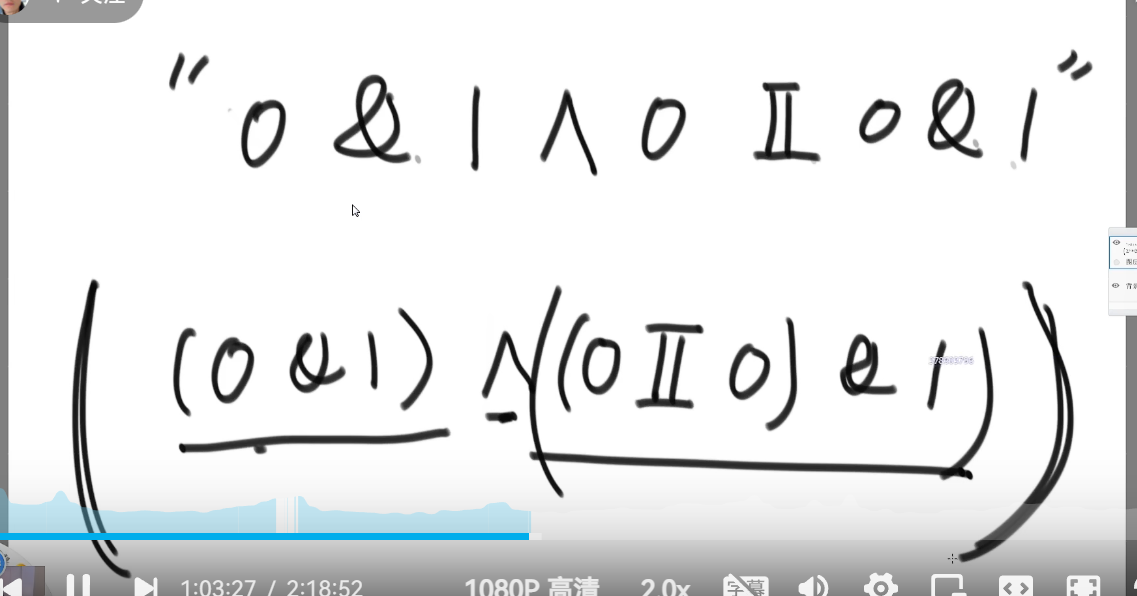 "0 & 1 ∧ 0 Ⅱ 0 & 1"
((0 & 1) ∧ ((0 Ⅱ 0) & 1))
1:03:27 / 2:18:52 1080P 高清 2.0x 字幕